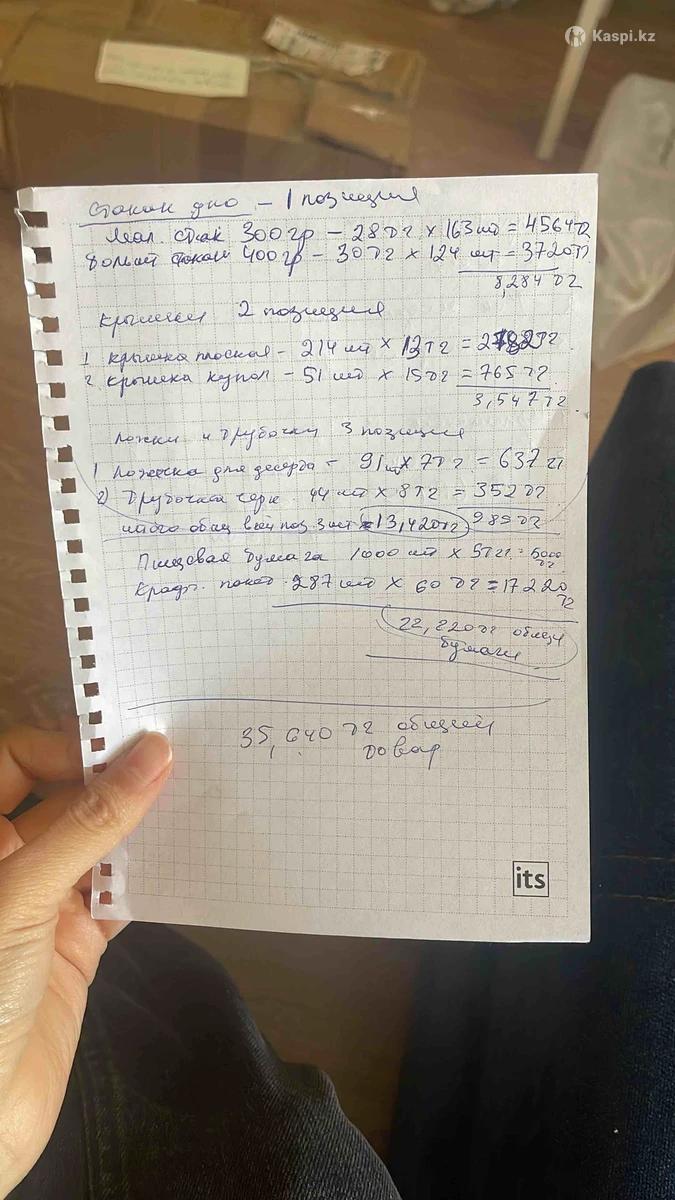 Kaspi.kz
стакан дно - 1 позиция
Мал. стак 300гр - 28тг × 163шт = 4564тг
Большой стакан 400гр - 30тг × 124 шт = 3720тг
8,284тг
крышки 2 позиция
1 крышка плоская - 214 шт × 13тг = 2782тг
2. крышка купол - 51 шт × 15тг = 765тг
3,547тг.
ложки и трубочки 3 позиция
1) ложечка для десерта - 91шт × 7тг = 637тг
2) Трубочка черн 44 шт × 8тг = 352тг
989тг
итого общ всей поз. 3шт 13,420тг
Пищевая бумага 1000 шт × 5тг = 5000тг
Крафт. пакет 287шт × 60тг = 17220тг
22,220тг общая
бумаги
35,640тг общий
товар
its